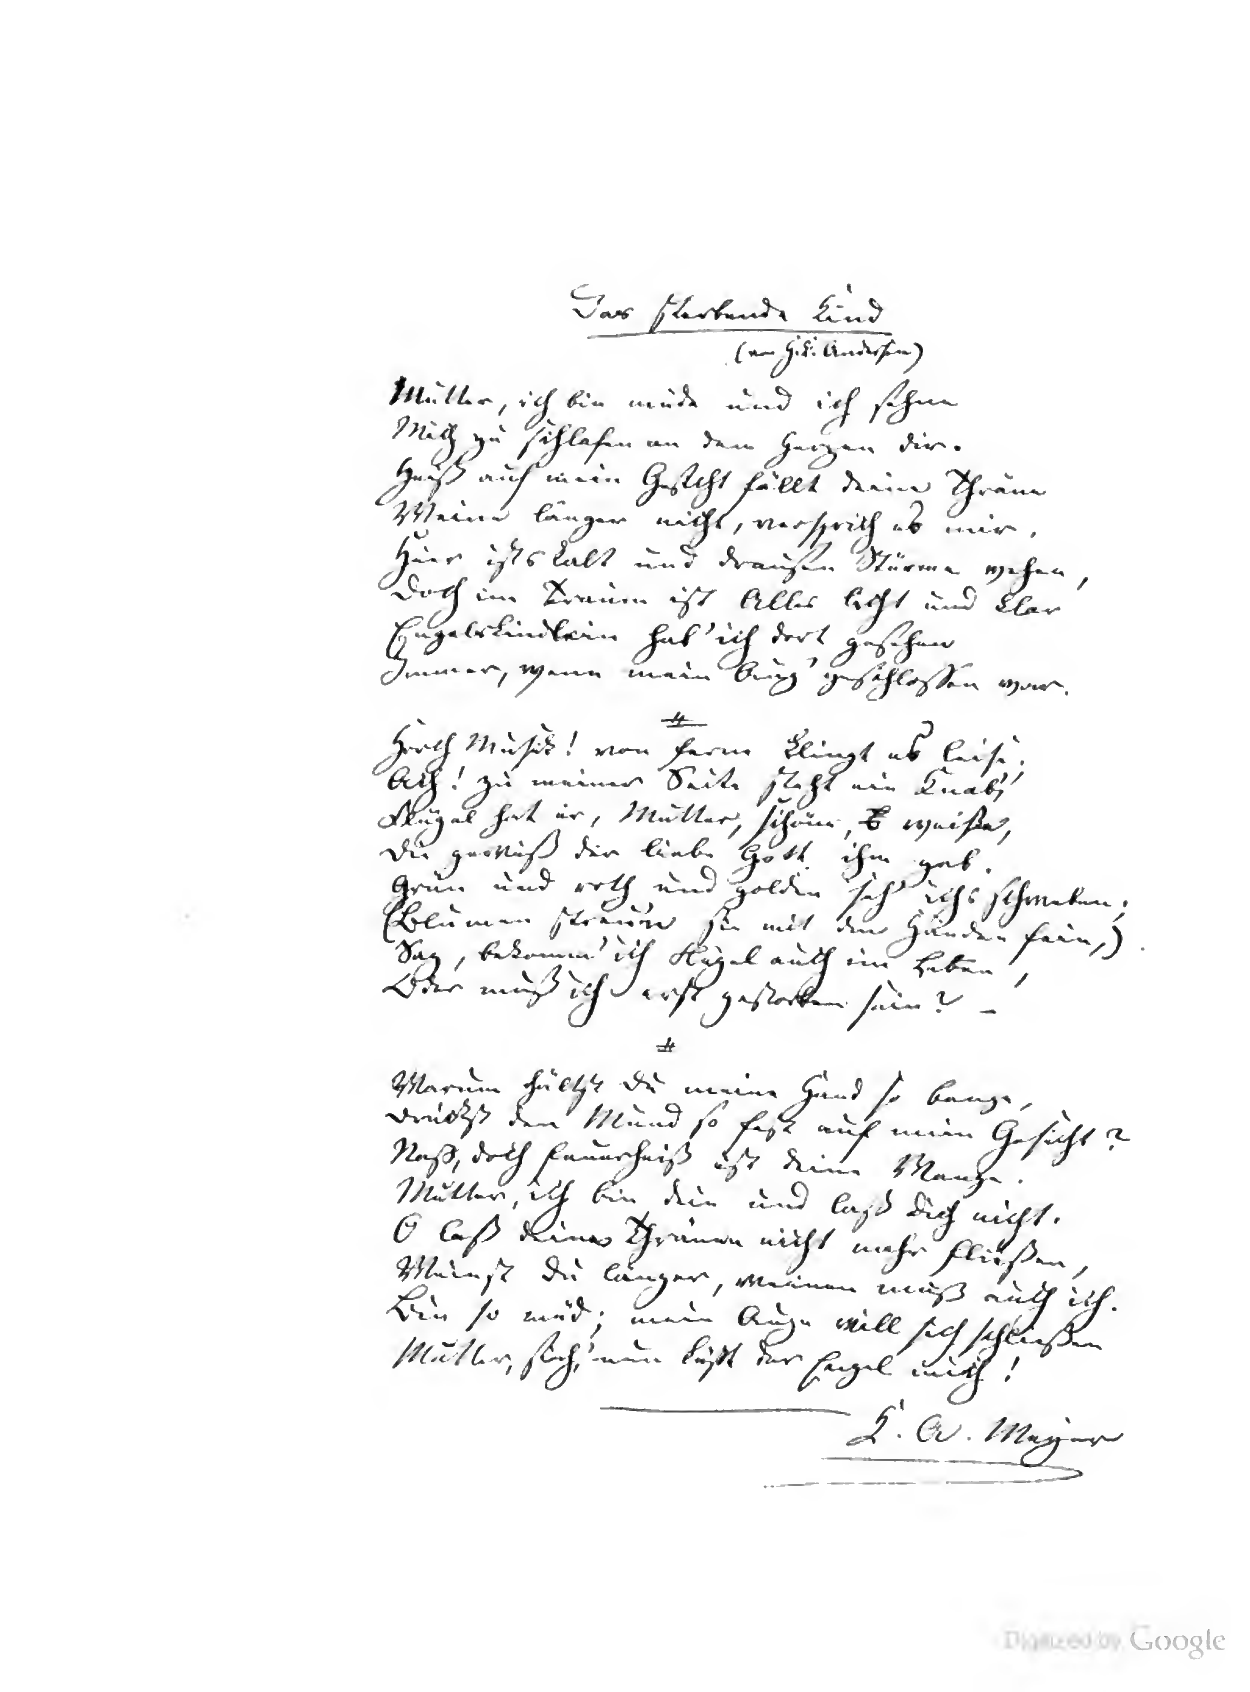 Das sterbende Kind
(von H. C. Andersen)
Mutter, ich bin müde und ich sehne
Mich zu schlafen an dem Herzen dir.
Heiß auf mein Gesicht fällt deine Thräne
Weine länger nicht, versprich es mir.
Hier ists kalt und draußen Stürme wehen,
Doch im Traum ist Alles licht und klar
Engelskindlein hab' ich dort gesehen
Immer, wenn mein Aug' geschlossen war.
#
Horch Musik! von ferne klingt es leise;
Ach! zu meiner Seite steht ein Knab',
Flügel hat er, Mutter, schöne, weiße,
Die gewiß der liebe Gott ihm gab.
Grün und roth und golden seh' ichs schweben;
(Blumen streuen sie mit den Händen fein,)
Sag, bekomm' ich Flügel auch im Leben,
Oder muß ich erst gestorben sein? –
#
Warum hältst du meine Hand so bange,
Drückst den Mund so fest auf mein Gesicht?
Naß, doch feuerheiß ist deine Wange.
Mutter, ich bin dein und laß dich nicht.
O laß deine Thränen nicht mehr fließen,
Weinst du länger, weinen muß auch ich.
Bin so müd; mein Auge will sich schließen
Mutter, sieh,' nun küßt der Engel mich!
K. A. Mayer
Digitized by Google